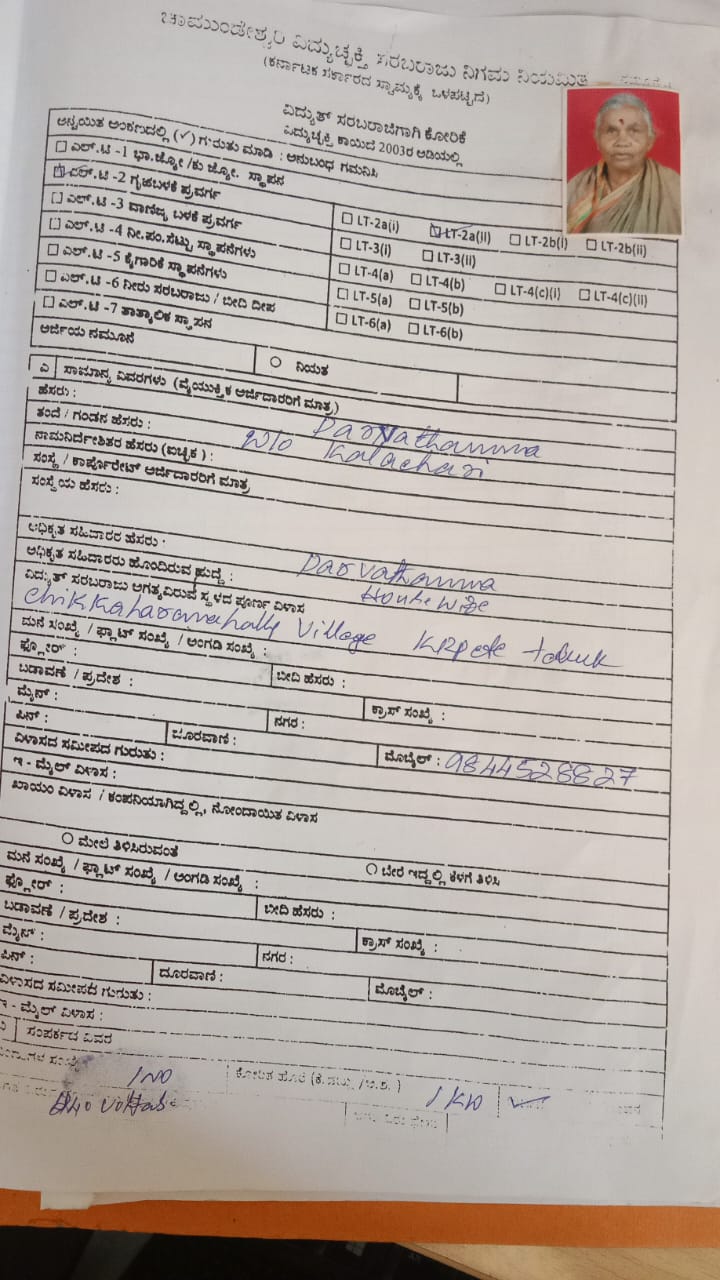 ಚಾಮುಂಡೇಶ್ವರಿ ವಿದ್ಯುಚ್ಛಕ್ತಿ ಸರಬರಾಜು ನಿಗಮ ನಿಯಮಿತ
(ಕರ್ನಾಟಕ ಸರ್ಕಾರದ ಸ್ವಾಮ್ಯಕ್ಕೆ ಒಳಪಟ್ಟಿದೆ)
ವಿದ್ಯುತ್ ಸರಬರಾಜಿಗಾಗಿ ಕೋರಿಕೆ
ವಿದ್ಯುಚ್ಛಕ್ತಿ ಕಾಯಿದೆ 2003ರ ಅಡಿಯಲ್ಲಿ
ಅನ್ವಯಿತ ಅಂಕಣದಲ್ಲಿ (✓) ಗುರುತು ಮಾಡಿ : ಅನುಬಂಧ ಗಮನಿಸಿ
ಎಲ್.ಟಿ -1 ಭಾ.ಜ್ಯೋ /ಕು ಜ್ಯೋ. ಸ್ಥಾಪನ
ಎಲ್.ಟಿ -2 ಗೃಹಬಳಕೆ ಪ್ರವರ್ಗ LT-2a(i) LT-2a(ii) LT-2b(i) LT-2b(ii)
ಎಲ್.ಟಿ -3 ವಾಣಿಜ್ಯ ಬಳಕೆ ಪ್ರವರ್ಗ LT-3(i) LT-3(ii)
ಎಲ್.ಟಿ -4 ನೀ.ಪಂ.ಸೆಟ್ಟು ಸ್ಥಾಪನೆಗಳು LT-4(a) LT-4(b) LT-4(c)(i) LT-4(c)(ii)
ಎಲ್.ಟಿ -5 ಕೈಗಾರಿಕೆ ಸ್ಥಾಪನೆಗಳು LT-5(a) LT-5(b)
ಎಲ್.ಟಿ -6 ನೀರು ಸರಬರಾಜು / ಬೀದಿ ದೀಪ LT-6(a) LT-6(b)
ಎಲ್.ಟಿ -7 ತಾತ್ಕಾಲಿಕ ಸ್ಥಾಪನ
ಅರ್ಜಿಯ ನಮೂನೆ ನಿಯತ
ಎ ಸಾಮಾನ್ಯ ವಿವರಗಳು (ವೈಯುಕ್ತಿಕ ಅರ್ಜಿದಾರರಿಗೆ ಮಾತ್ರ)
ಹೆಸರು : Parvathamma
ತಂದೆ / ಗಂಡನ ಹೆಸರು : W/o Kalachari
ನಾಮನಿರ್ದೇಶಿತರ ಹೆಸರು (ಐಚ್ಛಿಕ ) :
ಸಂಸ್ಥೆ / ಕಾರ್ಪೊರೇಟ್ ಅರ್ಜಿದಾರರಿಗೆ ಮಾತ್ರ
ಸಂಸ್ಥೆಯ ಹೆಸರು :
ಅಧಿಕೃತ ಸಹಿದಾರರ ಹೆಸರು : Parvathamma
ಅಧಿಕೃತ ಸಹಿದಾರರು ಹೊಂದಿರುವ ಹುದ್ದೆ : House wife
ವಿದ್ಯುತ್ ಸರಬರಾಜು ಅಗತ್ಯವಿರುವ ಸ್ಥಳದ ಪೂರ್ಣ ವಿಳಾಸ
Village KRpete taluk
ಮನೆ ಸಂಖ್ಯೆ / ಫ್ಲಾಟ್ ಸಂಖ್ಯೆ / ಅಂಗಡಿ ಸಂಖ್ಯೆ :
ಫ್ಲೋರ್ : ಬೀದಿ ಹೆಸರು :
ಬಡಾವಣೆ / ಪ್ರದೇಶ : ಕ್ರಾಸ್ ಸಂಖ್ಯೆ :
ಮೈನ್ : ನಗರ :
ಪಿನ್ : ದೂರವಾಣಿ : ಮೊಬೈಲ್ : 9844528827
ವಿಳಾಸದ ಸಮೀಪದ ಗುರುತು :
ಇ - ಮೈಲ್ ವಿಳಾಸ :
ಖಾಯಂ ವಿಳಾಸ / ಕಂಪನಿಯಾಗಿದ್ದಲ್ಲಿ, ನೋಂದಾಯಿತ ವಿಳಾಸ
ಮೇಲೆ ತಿಳಿಸಿರುವಂತೆ ಬೇರೆ ಇದ್ದಲ್ಲಿ ಕೆಳಗೆ ತಿಳಿಸಿ
ಮನೆ ಸಂಖ್ಯೆ / ಫ್ಲಾಟ್ ಸಂಖ್ಯೆ / ಅಂಗಡಿ ಸಂಖ್ಯೆ :
ಫ್ಲೋರ್ : ಬೀದಿ ಹೆಸರು :
ಬಡಾವಣೆ / ಪ್ರದೇಶ : ಕ್ರಾಸ್ ಸಂಖ್ಯೆ :
ಮೈನ್ : ನಗರ :
ಪಿನ್ : ದೂರವಾಣಿ : ಮೊಬೈಲ್ :
ವಿಳಾಸದ ಸಮೀಪದ ಗುರುತು :
ಇ - ಮೈಲ್ ವಿಳಾಸ :
ಸಂಪರ್ಕದ ವಿವರ
1 NO 1 KW